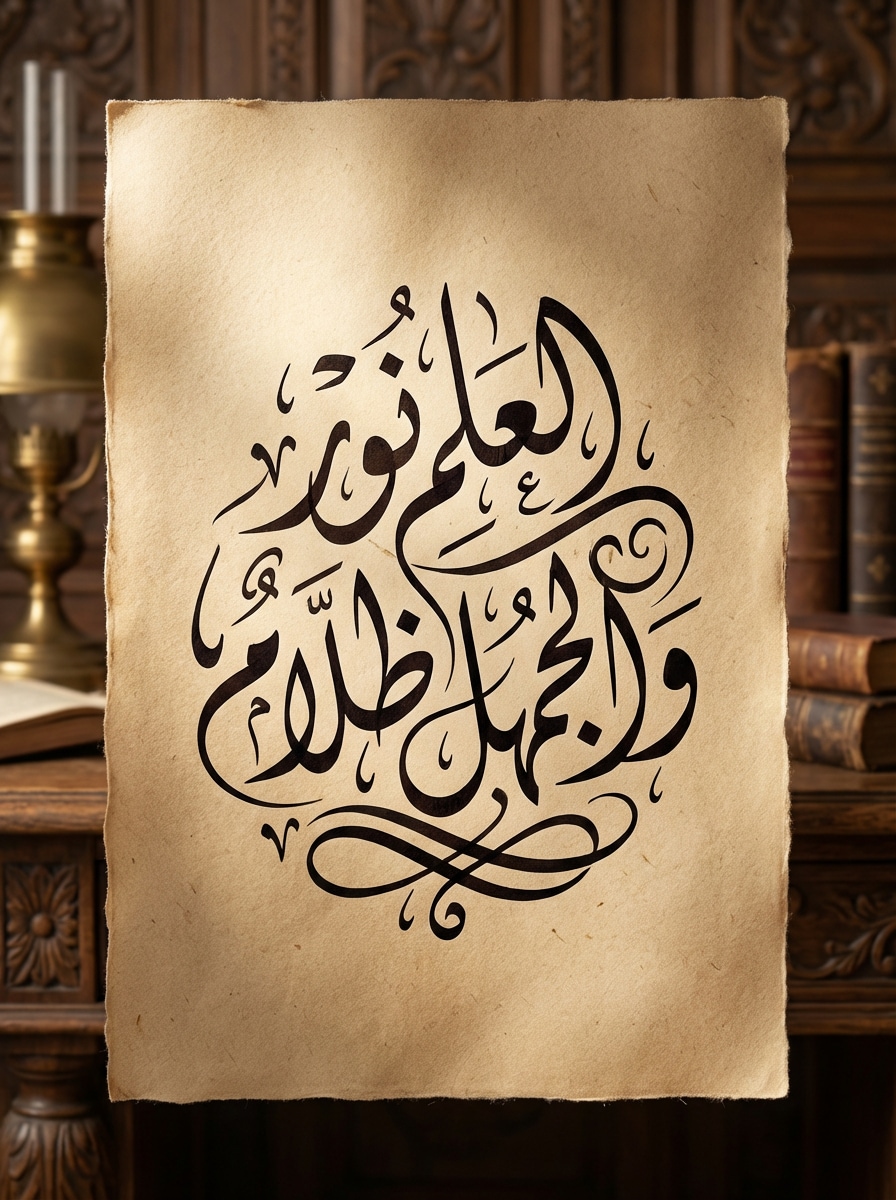 العلم نور
والجهل ظلام